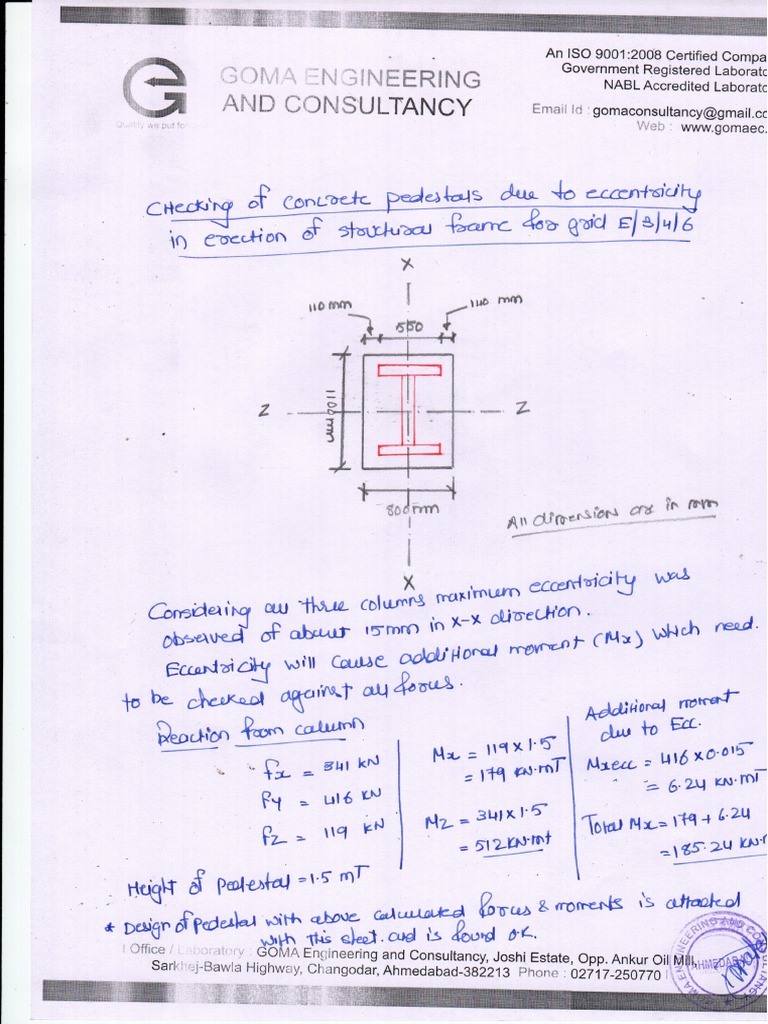 An ISO 9001:2008 Certified Compa
Government Registered Laborato
NABL Accredited Laborato
GOMA ENGINEERING
AND CONSULTANCY
Quality we put for
Email Id : gomaconsultancy@gmail.co
Web : www.gomaec.
Checking of concrete pedestals due to eccentricity
in erection of structural frame for grid E/3/4/6
X
110 mm
550
140 mm
1100mm
Z
Z
800mm
All dimension are in mm
X
Considering all three columns maximum eccentricity was
observed of about 15mm in x-x direction.
Eccentricity will cause additional moment (Mx) which need
to be checked against all forces.
Reaction from column
fx = 341 KN
fy = 416 KN
fz = 119 KN
Mx = 119 x 1.5
= 179 KN.mT
Mz = 341 x 1.5
= 512 KN.mt
Additional moment
due to Ecc.
Mxecc = 416 x 0.015
= 6.24 KN.mT
Total Mx = 179 + 6.24
= 185.24 KN.m
Height of Pedestal = 1.5 mT
* Design of Pedestal with above calculated forces & moments is attached
with this sheet and is found OK.
Office / Laboratory : GOMA Engineering and Consultancy, Joshi Estate, Opp. Ankur Oil Mill,
Sarkhej-Bawla Highway, Changodar, Ahmedabad-382213 Phone : 02717-250770